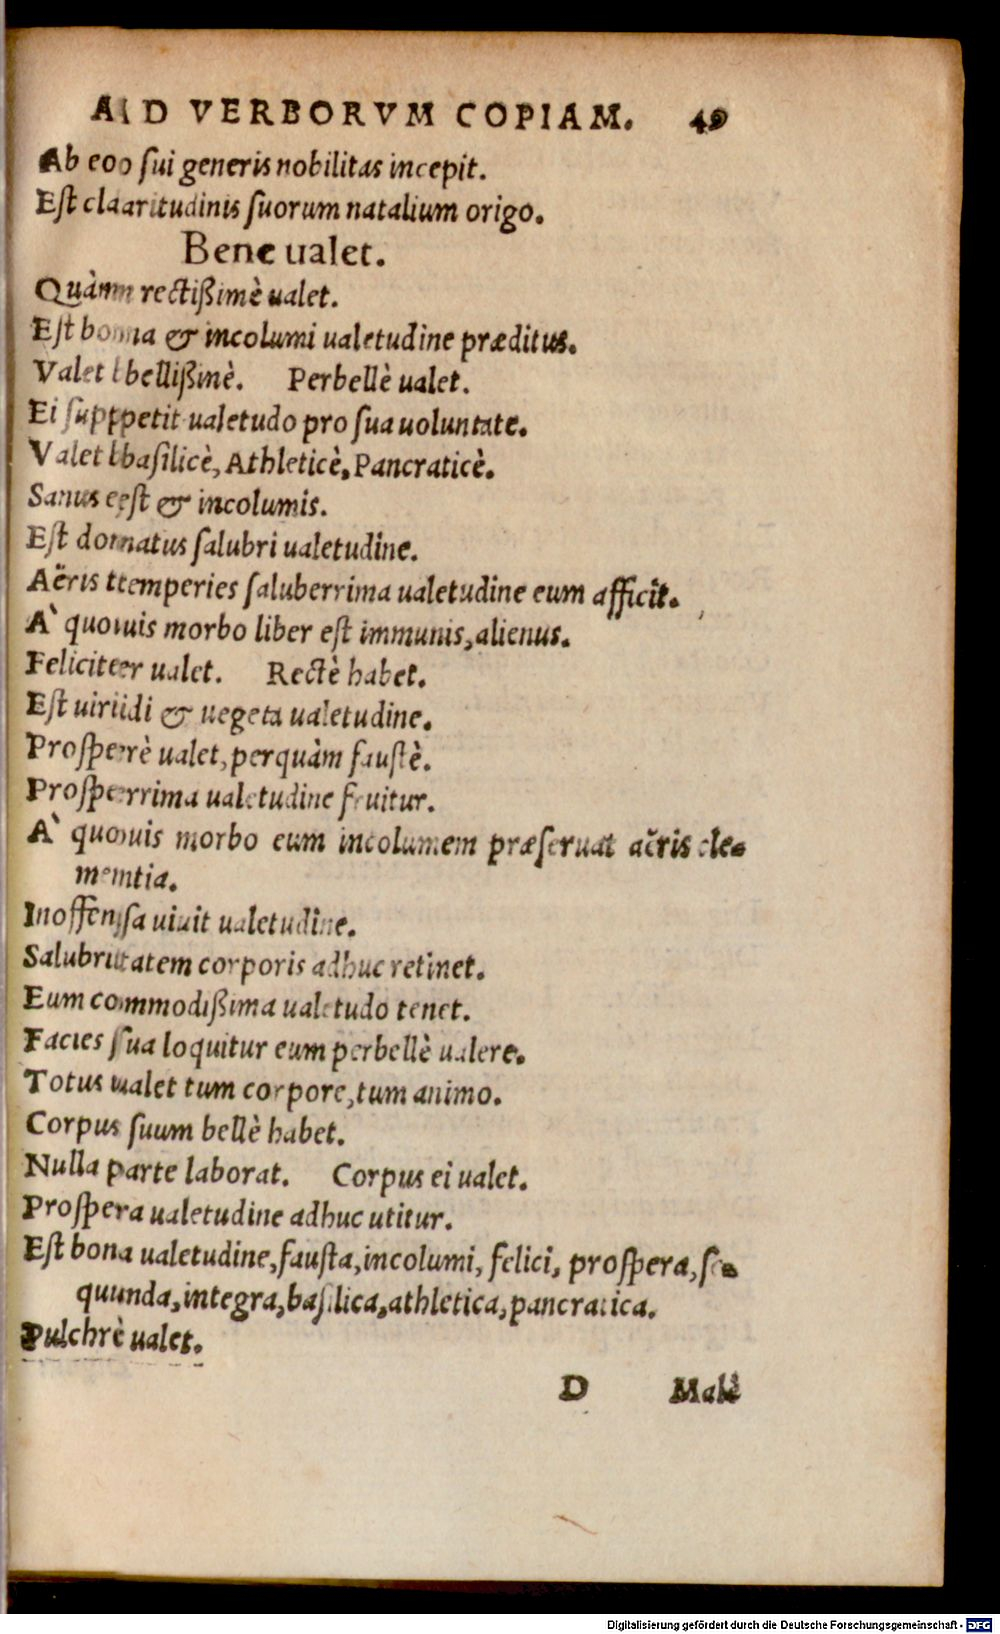 AD VERBORVM COPIAM. 49
Ab eo sui generis nobilitas incepit.
Est claritudinis suorum natalium origo.
Bene ualet.
Quàm rectißimè ualet.
Est bona & incolumi ualetudine præditus.
Valet bellißimè. Perbellè ualet.
Ei suppetit ualetudo pro sua uoluntate.
Valet basilicè, Athleticè, Pancraticè.
Sanus est & incolumis.
Est donatus salubri ualetudine.
Aëris temperies saluberrima ualetudine eum afficit.
A` quouis morbo liber est immunis, alienus.
Feliciter ualet. Rectè habet.
Est uiridi & uegeta ualetudine.
Prosperè ualet, perquàm faustè.
Prosperrima ualetudine fruitur.
A` quouis morbo eum incolumem præseruat aëris cle-
mentia.
Inoffensa uiuit ualetudine.
Salubritatem corporis adhuc retinet.
Eum commodißima ualetudo tenet.
Facies sua loquitur eum perbellè ualere.
Totus ualet tum corpore, tum animo.
Corpus suum bellè habet.
Nulla parte laborat. Corpus ei ualet.
Prospera ualetudine adhuc utitur.
Est bona ualetudine, fausta, incolumi, felici, prospera, se-
quunda, integra, basilica, athletica, pancratica.
Pulchrè ualet.
D Malè
Digitalisierung gefördert durch die Deutsche Forschungsgemeinschaft - DFG